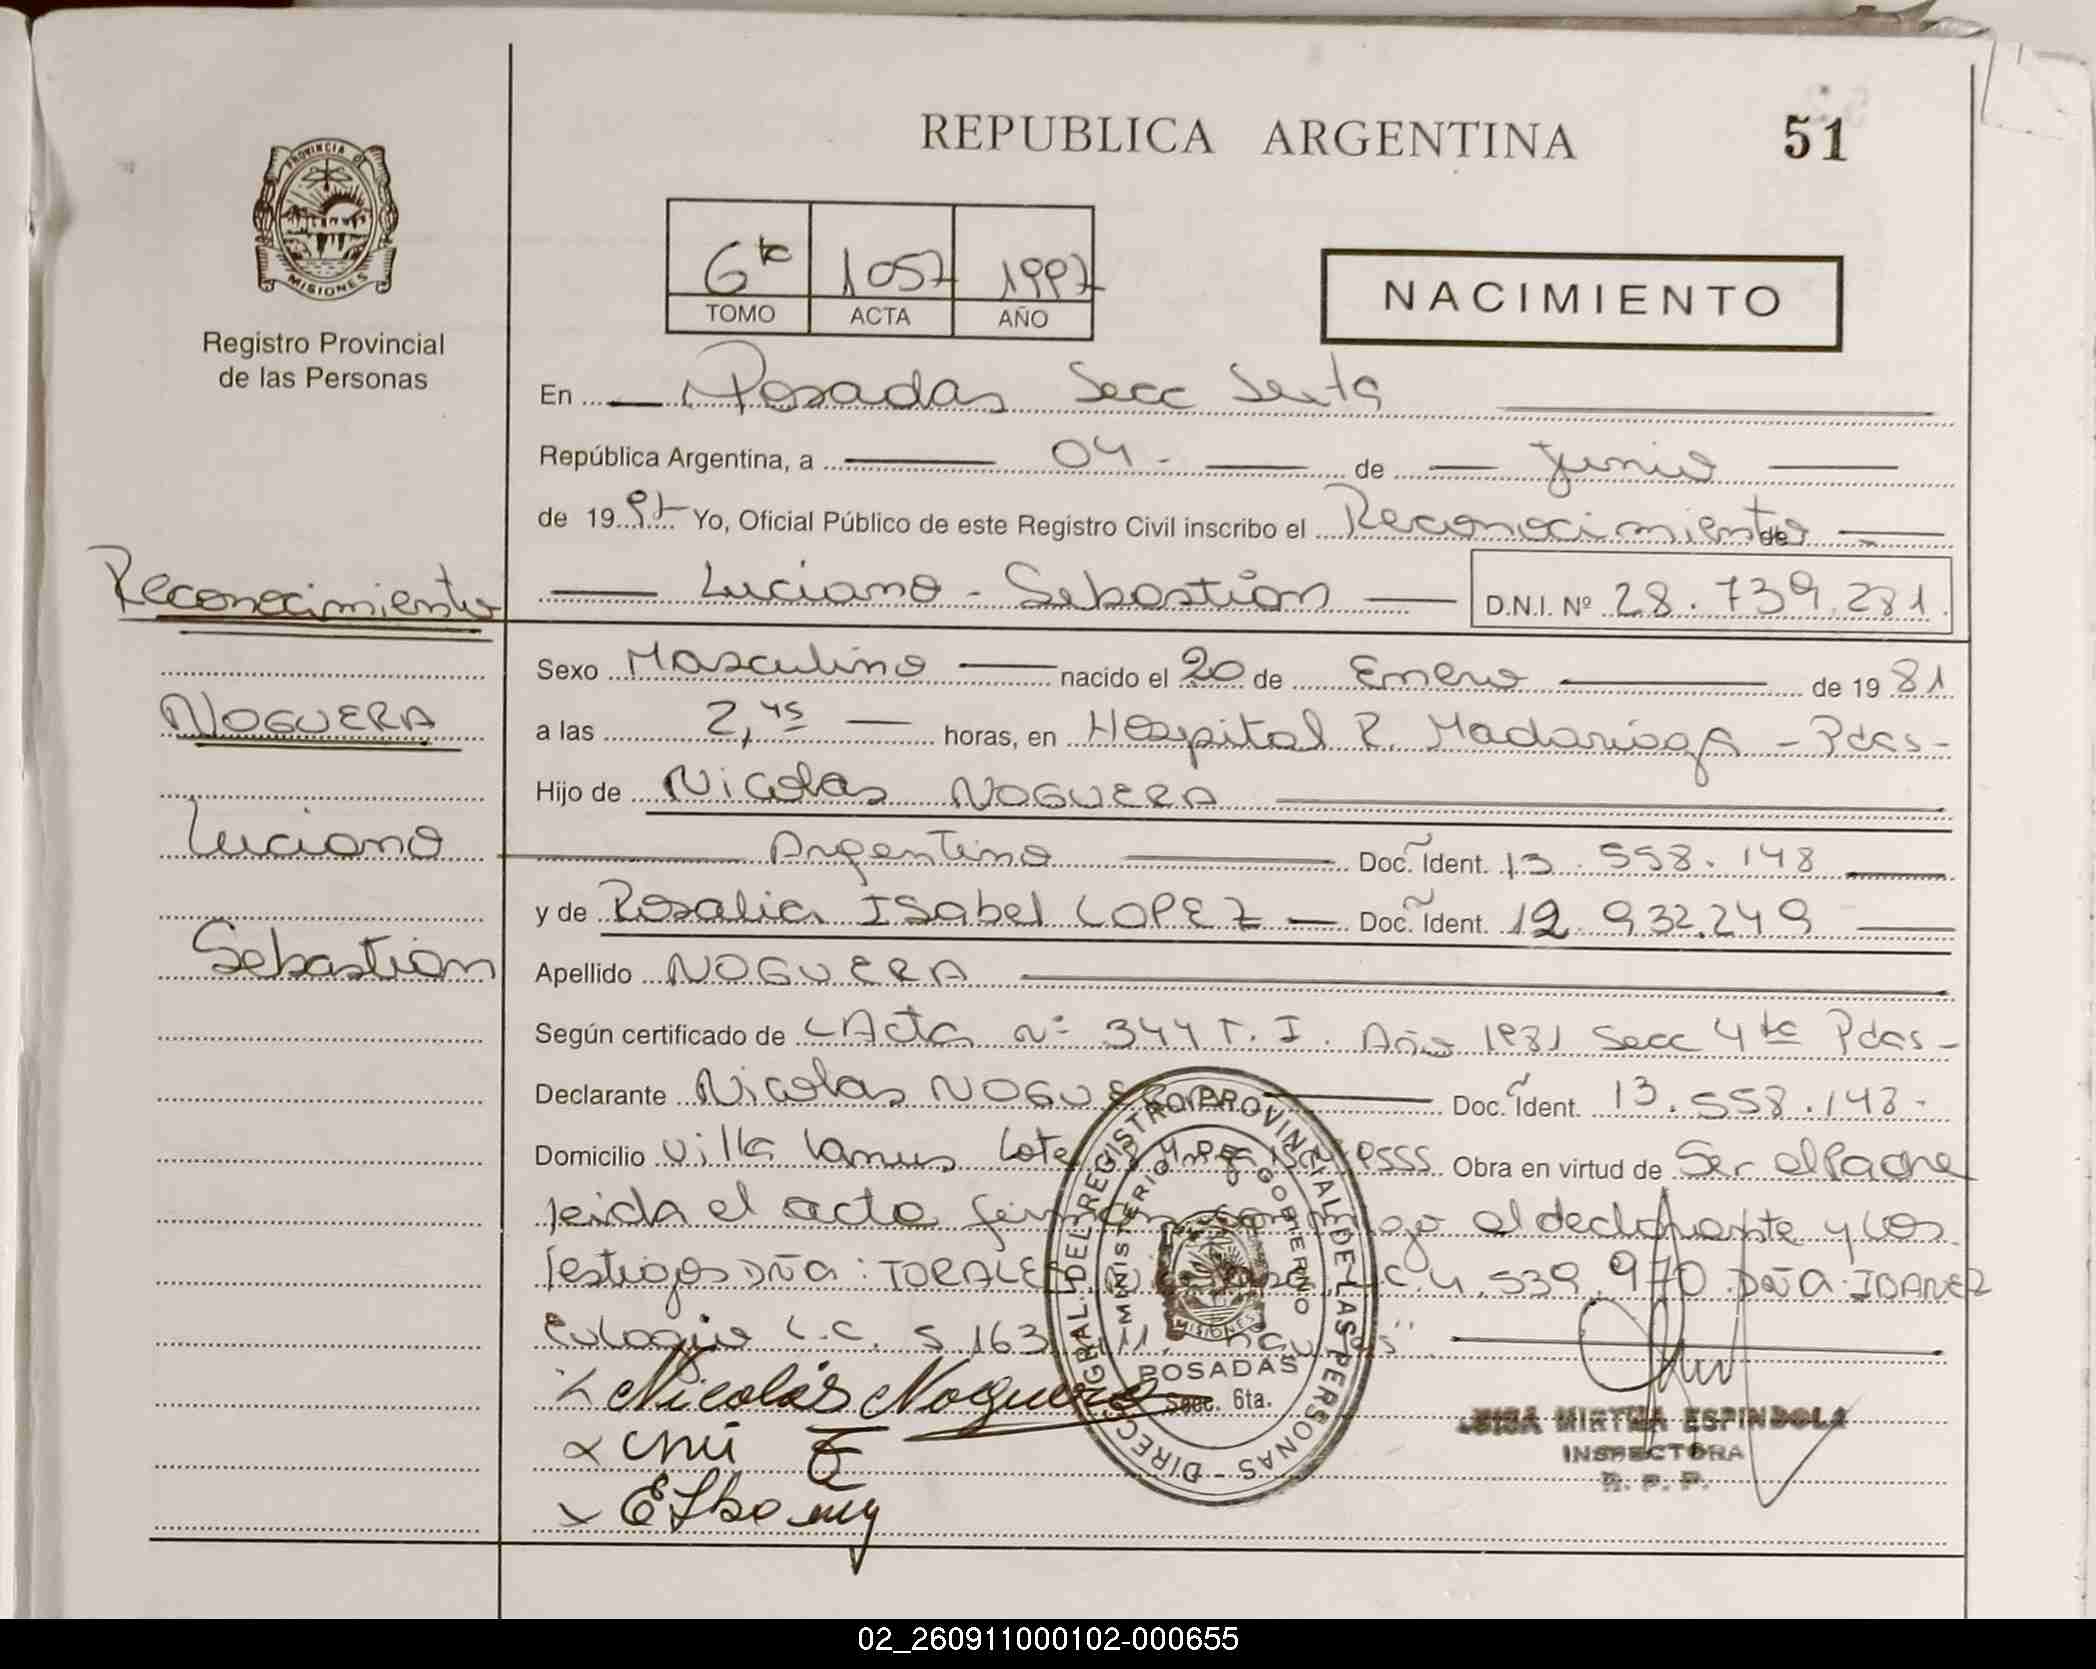 REPUBLICA ARGENTINA
51
PROVINCIA DE
MISIONES
Registro Provincial
de las Personas
6ta 1057 1997
TOMO ACTA AÑO
NACIMIENTO
En Posadas Secc Sexta
República Argentina, a 04- de Junio
de 1997 Yo, Oficial Público de este Registro Civil inscribo el Reconocimiento de
Luciano - Sebastián D.N.I. Nº 28.739.281
Reconocimiento
NOGUERA
Luciano
Sebastián
Sexo Masculino nacido el 20 de Enero de 1981
a las 2,45 horas, en Hospital R. Madariaga - Pdas-
Hijo de Nicolas NOGUERA
Argentino Doc. Ident. 13.558.148
y de Rosalia ISabel LOPEZ Doc. Ident. 12.932.249
Apellido NOGUERA
Según certificado de Acta Nº 344 T. I. Año 1981 Secc 4ta Pdas-
Declarante Nicolas NOGUERA Doc. Ident. 13.558.148-
Domicilio Villa Lanus Lote Obra en virtud de Ser el Padre
leida el acta firman conmigo el declarante y los
Testigos Dña: TORALES L.C. 4.539.970 Dña:
Eulogia L.C. 5.163
Nicolás Noguera
DIRECC. GRAL. DEL REGISTRO PROVINCIAL DE LAS PERSONAS -
MINISTERIO DE GOBIERNO
MISIONES
POSADAS
Secc. 6ta.
LUISA MIRTHA ESPINDOLA
INSPECTORA
R. P. P.
02_260911000102-000655